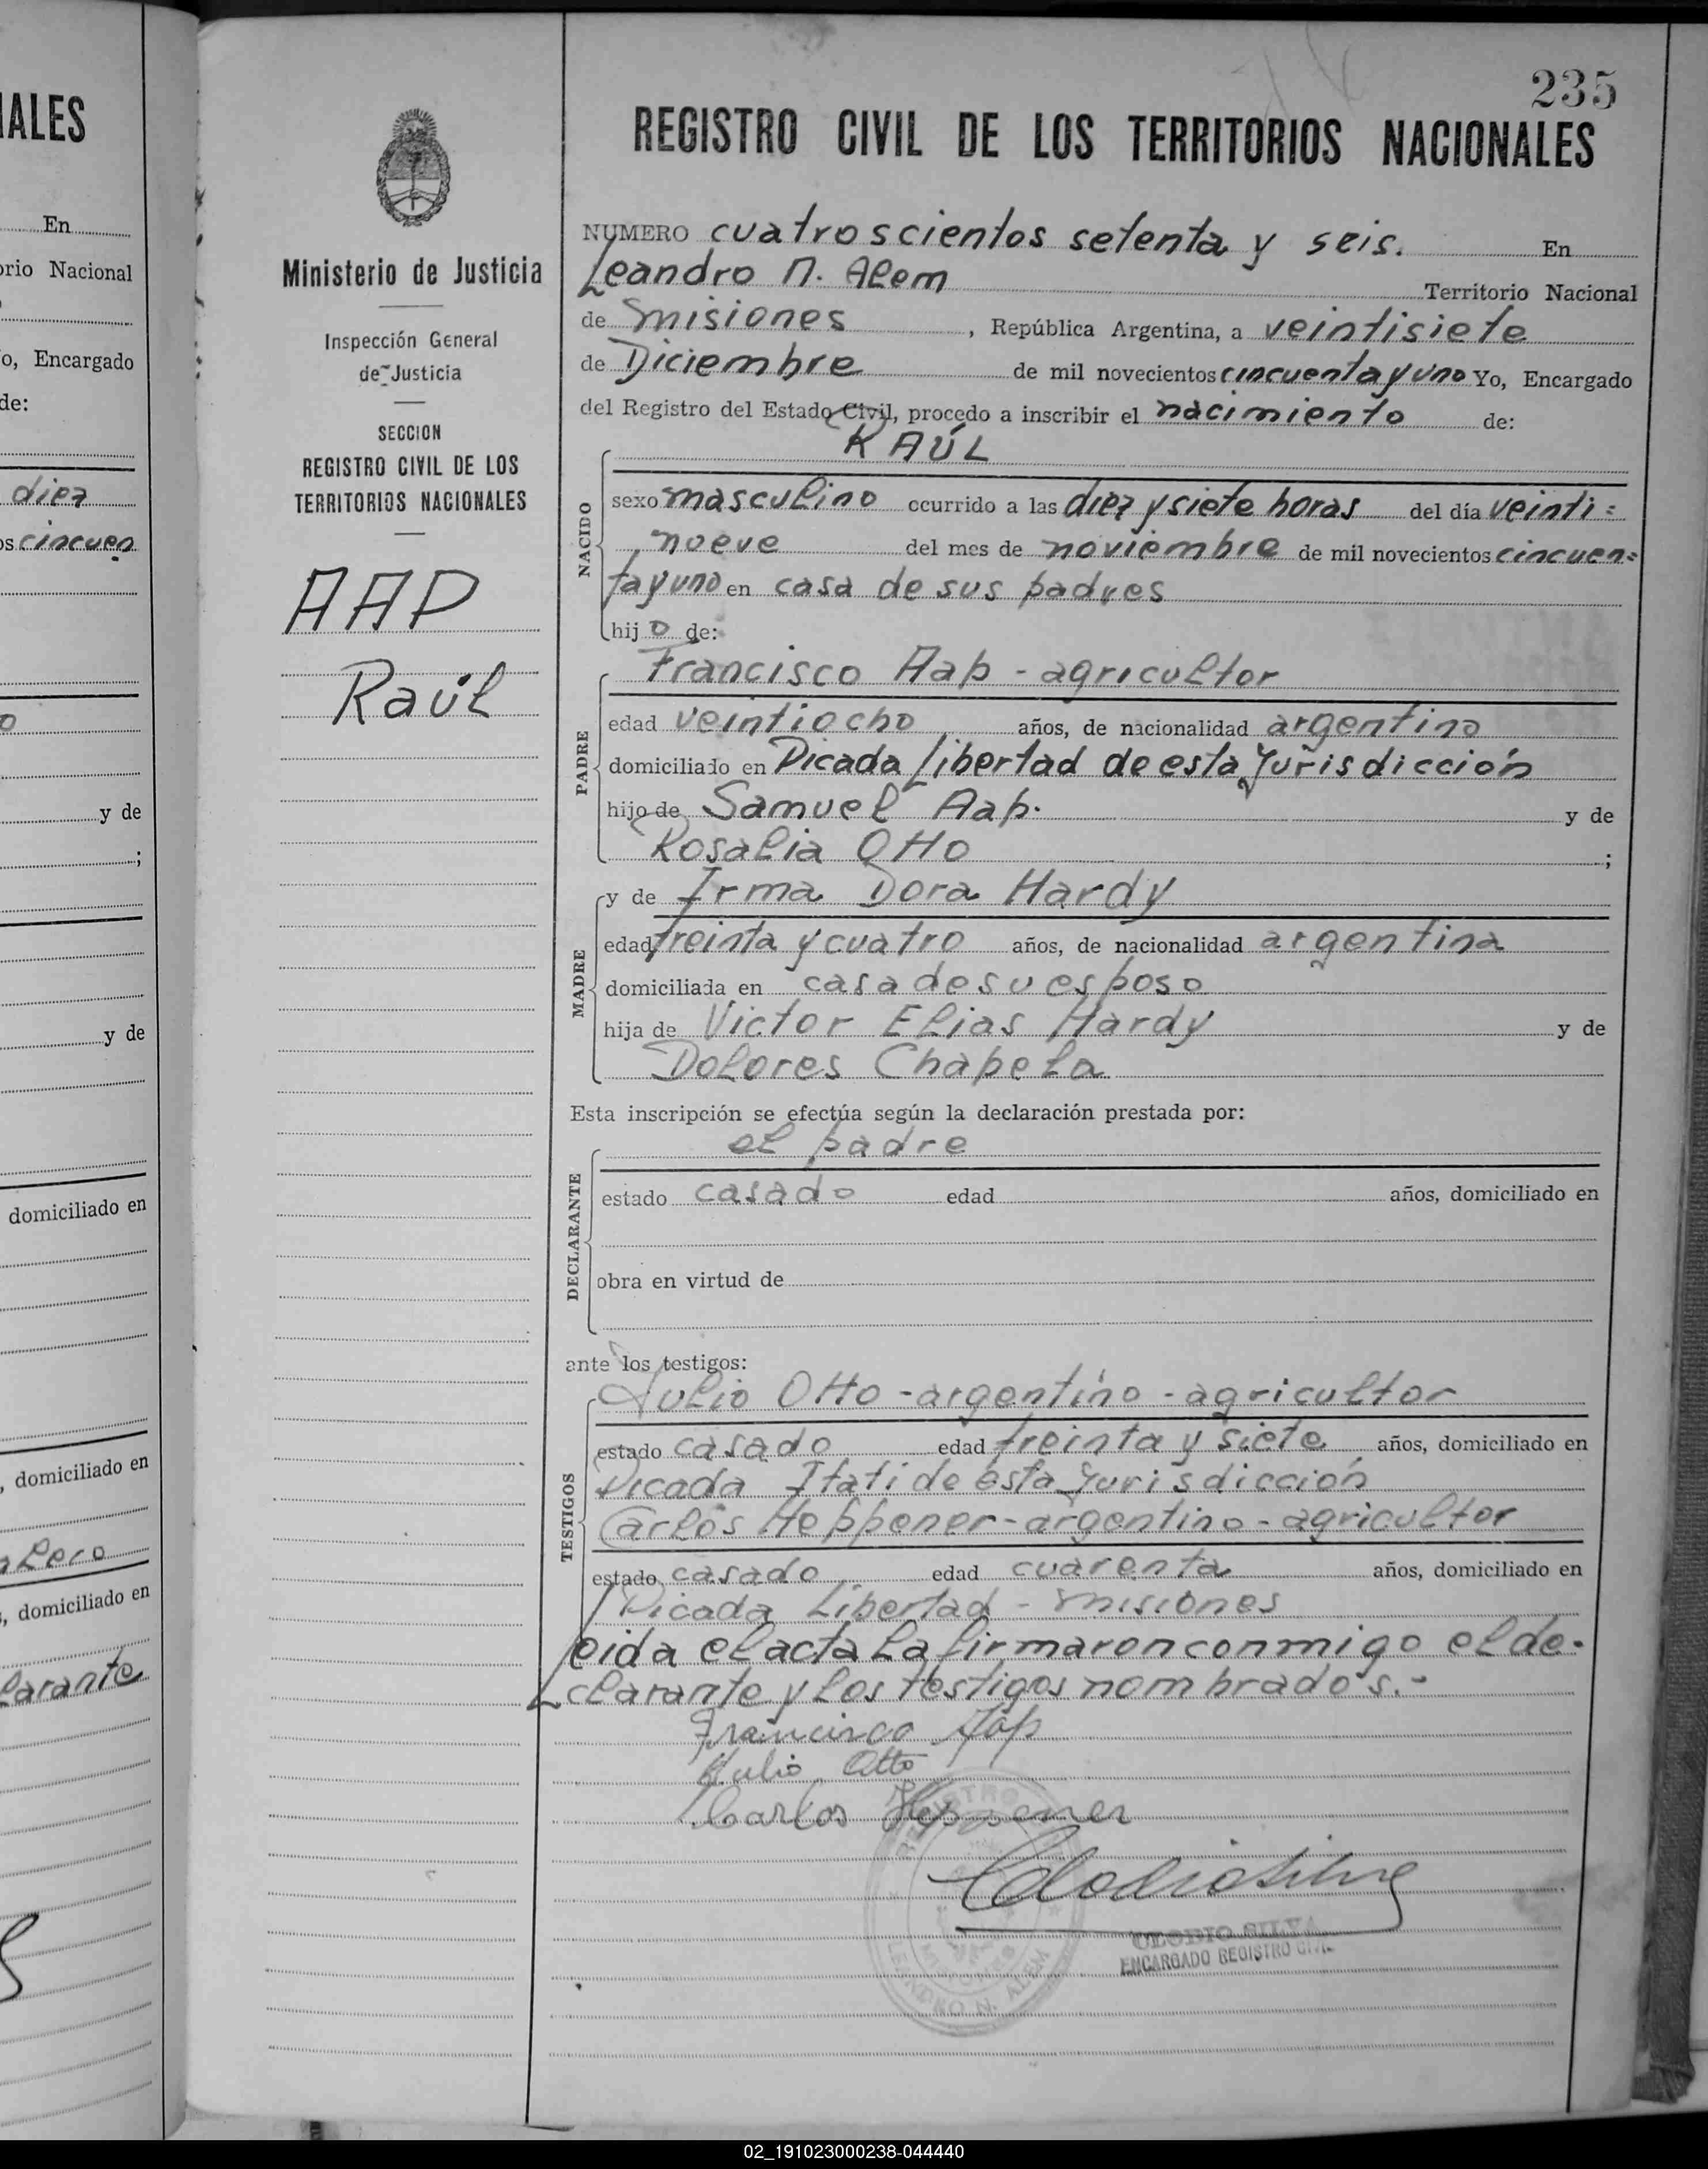 235
REGISTRO CIVIL DE LOS TERRITORIOS NACIONALES
NUMERO cuatroscientos setenta y seis. En
Leandro N. Alem Territorio Nacional
de Misiones, República Argentina, a veintisiete
de Diciembre de mil novecientos cincuenta y uno Yo, Encargado
del Registro del Estado Civil, procedo a inscribir el nacimiento de:
RAÚL
NACIDO
sexo masculino ocurrido a las diez y siete horas del día veinti=
nueve del mes de noviembre de mil novecientos cincuen=
ta y uno en casa de sus padres
hijo de:
PADRE
Francisco Aap - agricultor
edad veintiocho años, de nacionalidad argentino
domiciliado en Picada Libertad de esta Jurisdicción
hijo de Samuel Aap. y de
Rosalia Otto ;
MADRE
y de Irma Dora Hardy
edad treinta y cuatro años, de nacionalidad argentina
domiciliada en casa de su esposo
hija de Victor Elias Hardy y de
Dolores Chapela
Esta inscripción se efectúa según la declaración prestada por:
DECLARANTE
el padre
estado casado edad años, domiciliado en
obra en virtud de
ante los testigos:
TESTIGOS
Julio Otto - argentino - agricultor
estado casado edad treinta y siete años, domiciliado en
Picada Itati de esta Jurisdicción
Carlos Heppener - argentino - agricultor
estado casado edad cuarenta años, domiciliado en
Picada Libertad - Misiones
Leida el acta la firmaron conmigo el de-
clarante y los testigos nombrados.-
Francisco Aap
Julio Otto
Carlos Heppener
Clodio Silva
CLODIO SILVA
ENCARGADO REGISTRO CIVIL
REGISTRO
LEANDRO N. ALEM
Ministerio de Justicia
Inspección General
de Justicia
SECCION
REGISTRO CIVIL DE LOS
TERRITORIOS NACIONALES
AAP
Raúl
IALES
En
orio Nacional
o, Encargado
de:
diez
os cincuen
o
y de
;
y de
domiciliado en
, domiciliado en
, domiciliado en
larante
02_191023000238-044440